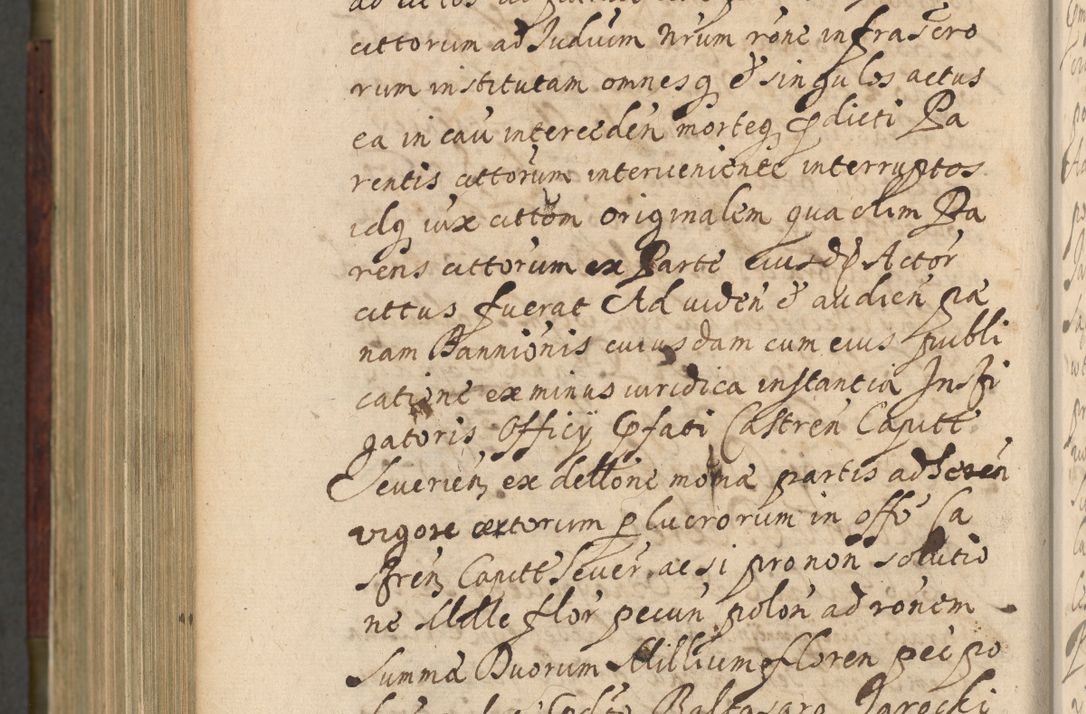 cittorum ad Iudicium nrum rône infrascro
rum institutam omnesq et singulos actus
ea in cau interceden morteq pdicti Pa
rentis cittorum interveniente interruptos
idq iux cittôm originalem qua olim Pa
rens cittorum ex Parte eiusdem Actôr
cittus fuerat Ad viden et audien pæ
nam Bannionis cuiusdam cum eius publi
catione ex minus iuridica instantia Insti
gatoris Officÿ pfati Castren Capitt
Severien ex dellône motæ partis adhæren
vigore lucrorum in offô Ca
stren Capitt Sever ac si pro non solutio
ne Mille flor pecun polon ad rônem
Summæ Duorum Millium floren pec po
Baltasaro Jarocki